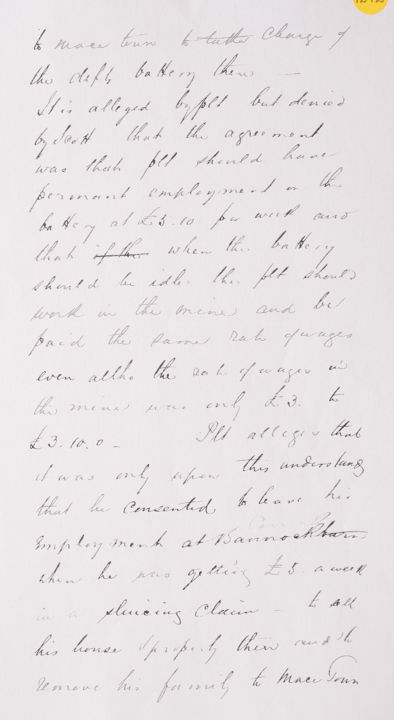 to mace town to take charge of
the defts battery there —
It is alleged by plt but denied
by Scott that the agreement
was that plt should have
permanent employment on the
battery at £3.10 per week and
that if the when the battery
should be idle the plt should
work in the mine and be
paid the same rate of wages
even altho the rate of wages in
the mine was only £3. to
£3.10.0 — Plt alleges that
it was only upon this understandg
that he consented to leave his
employment at Bannockburn
when he was getting £5 a week
in a sluicing claim — to sell
his house & property there and to
remove his family to Mace Town